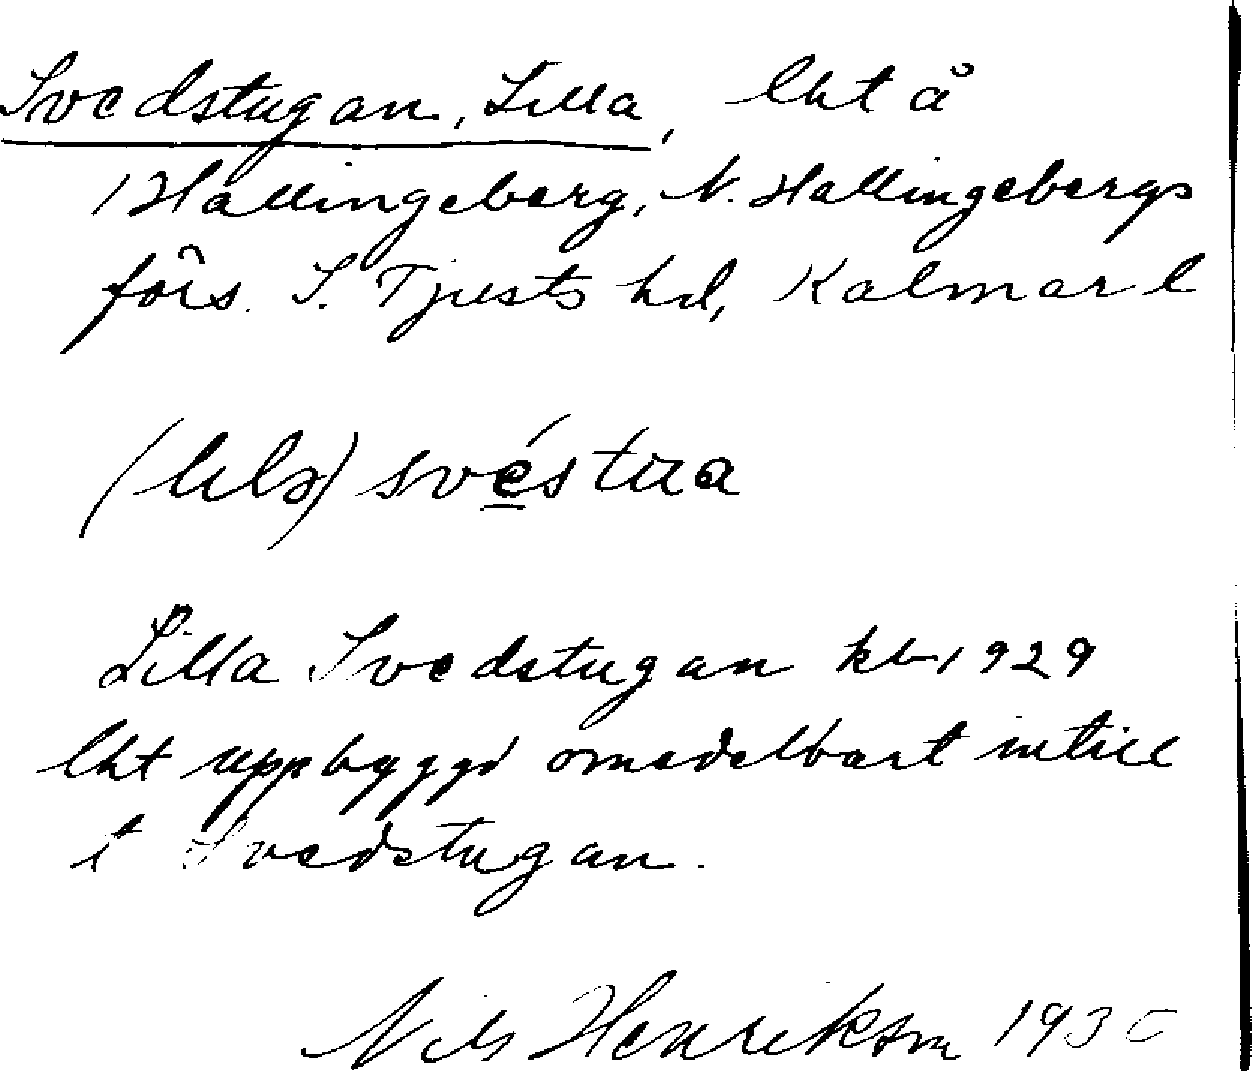 Svedstugan, Lilla, lht å
1 Hallingeberg, N. Hallingebergs
förs. S. Tjusts hd, Kalmar l
(lila) svéstua
Lilla Svedstugan kb 1929
lht uppbyggd omedelbart intill
t Svedstugan.
Nils Henrikson